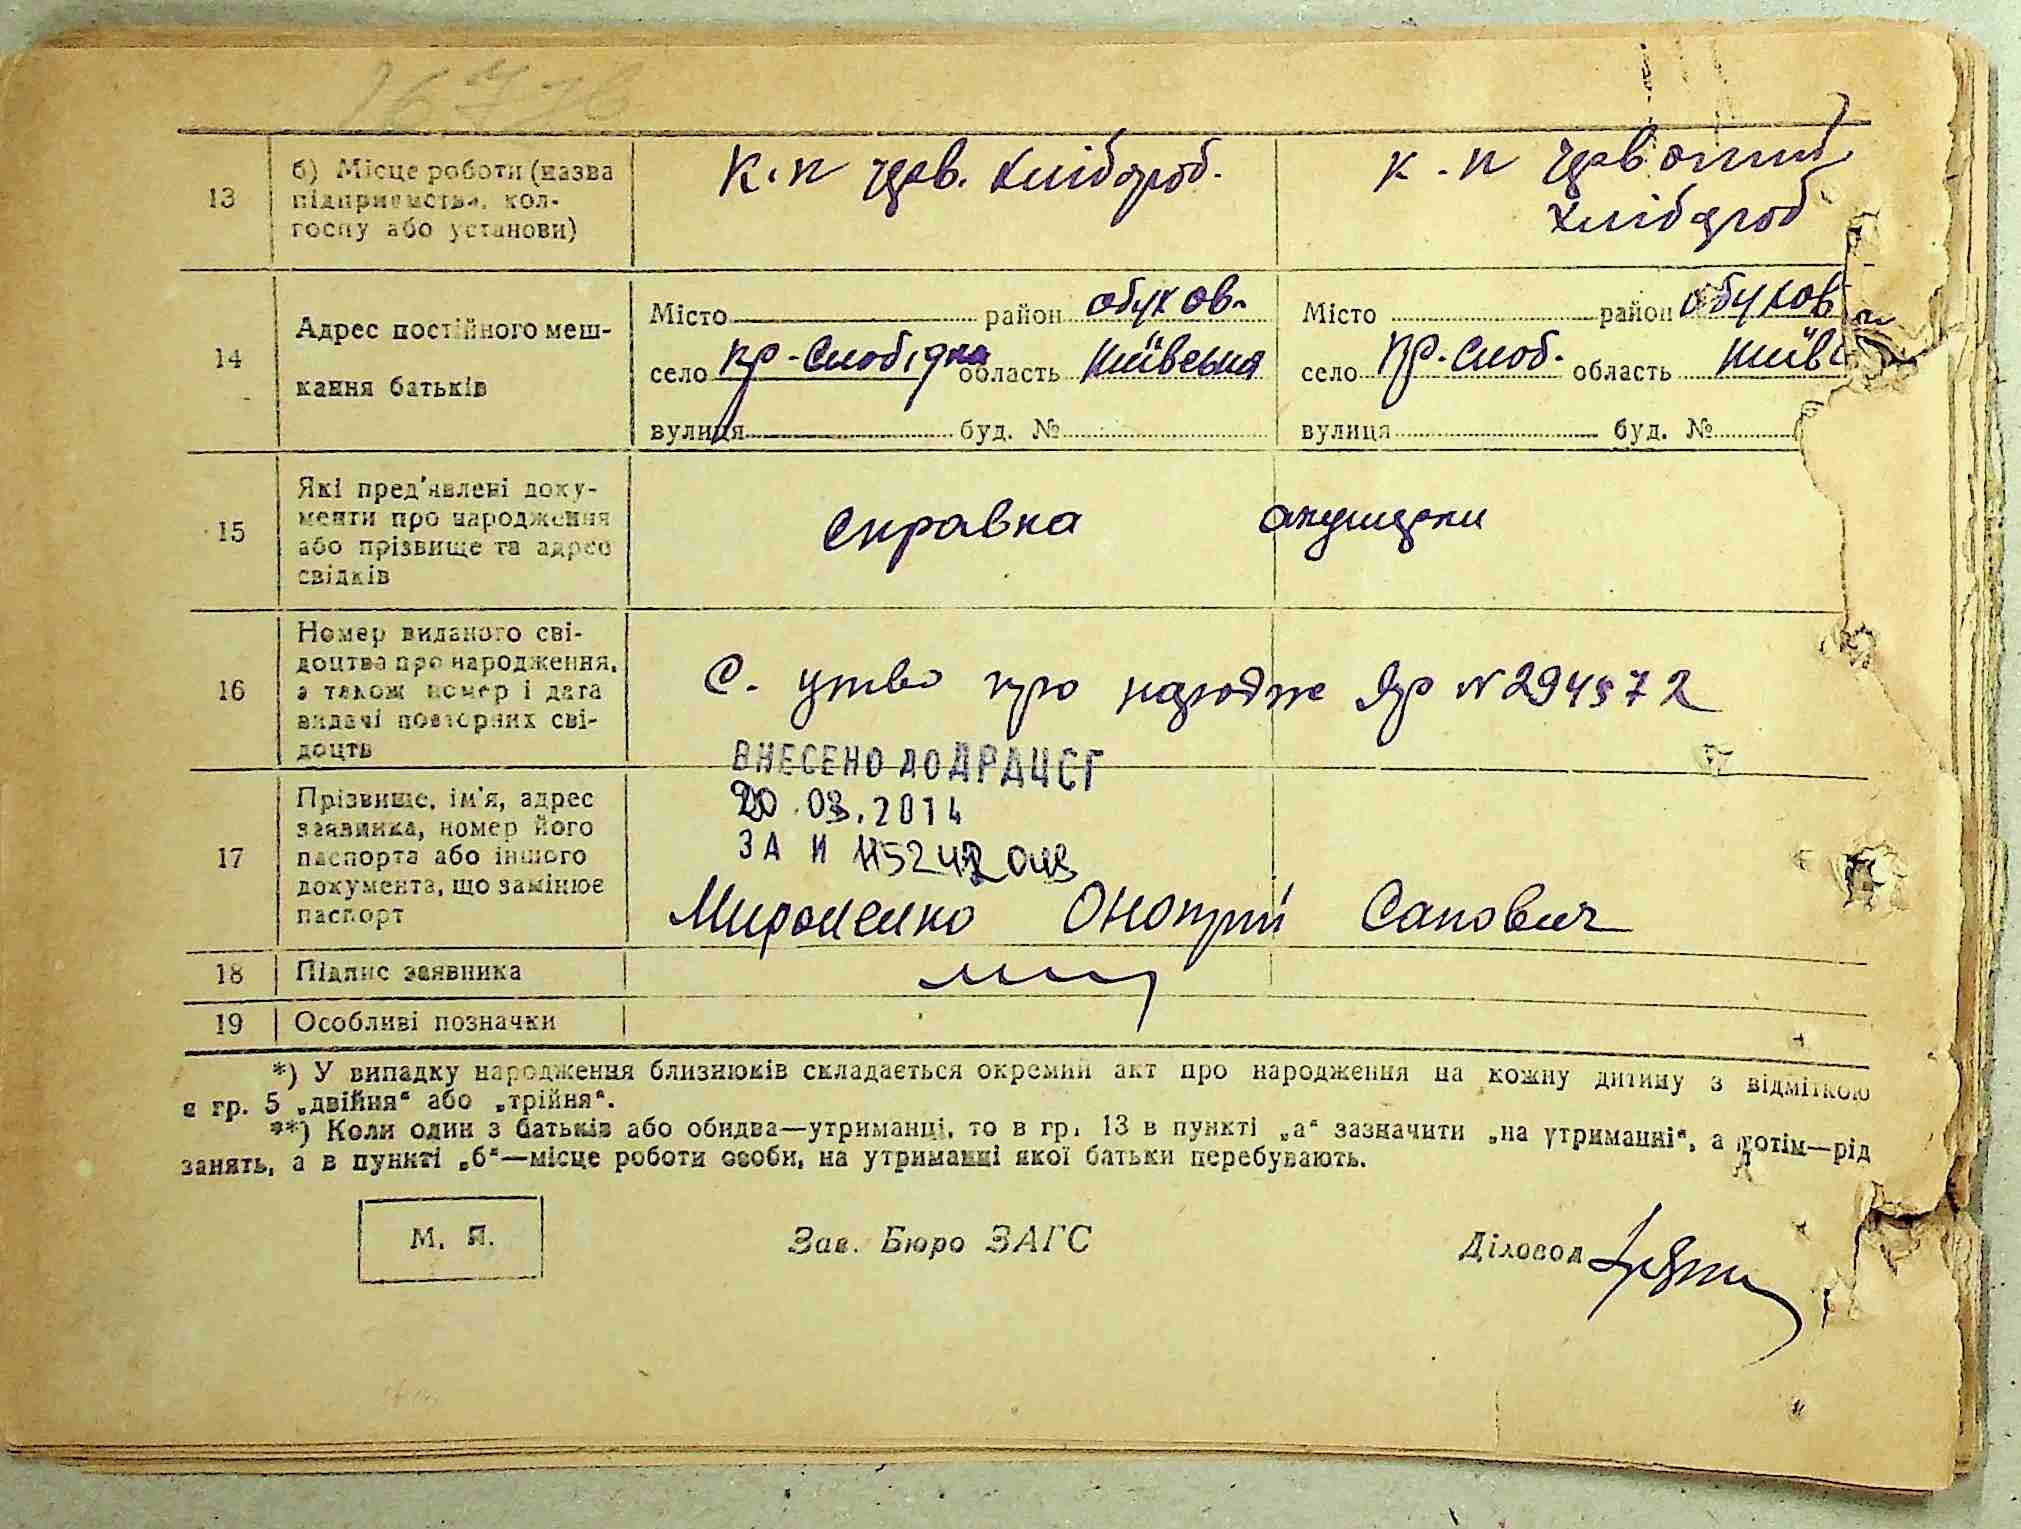 13
б) Місце роботи (назва
підприємства, кол-
госпу або установи)
к.п черв. хлібороб.
к.п червоний
хлібороб
14
Адрес постійного меш-
кання батьків
Місто район обухов-
село пр-слобідка область київська
вулиця буд. №
Місто район обухов
село пр-слоб. область київ
вулиця буд. №
15
Які пред'явлені доку-
менти про народження
або прізвище та адрес
свідків
справка акушерки
16
Номер виданого сві-
доцтва про народження,
а також номер і дата
видачі повторних сві-
доцтв
С. цтво про народже Яр N 294572
ВНЕСЕНО ДО ДРАЦСГ
20.03.2014
ЗА N
17
Прізвище, ім'я, адрес
заявника, номер його
паспорта або іншого
документа, що замінює
паспорт
Мироненко Онопрій Сапович
18
Підпис заявника
19
Особливі позначки
*) У випадку народження близнюків складається окремий акт про народження на кожну дитину з відміткою
в гр. 5 „двійня“ або „трійня“.
**) Коли один з батьків або обидва—утриманці, то в гр. 13 в пункті „а“ зазначити „на утриманні“, а потім—рід
занять, а в пункті „б“—місце роботи особи, на утриманні якої батьки перебувають.
М. П.
Зав. Бюро ЗАГС
Діловод